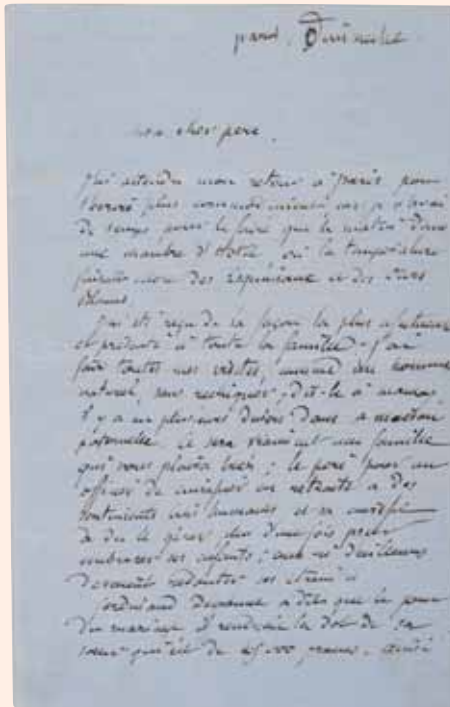 paris, Dimanche
mon cher père,
J'ai attendu mon retour à paris pour
t'écrire plus commodément car je n'avais
de temps pour le faire que le matin dans
une chambre d'hotel où la température
des Esquimaux et des Ours
blancs.
J'ai été reçu de la façon la plus
et présenté à toute la famille - j'ai
fait toutes mes visites, comme un homme
naturel, sans rechigner; dis-le à maman,
il y a eu plusieurs diners dans la maison
paternelle. Ce sera vraiment une famille
qui vous plaira bien; le père pour un
officier de en retraite a des
sentiments
a dû le gêner plus d'une fois pour
embrasser ses enfants; eux ni d'ailleurs
redouter
ferdinand a dit que le jour
du mariage il rendrait la dot de sa
soeur qui est de 45.000 francs.